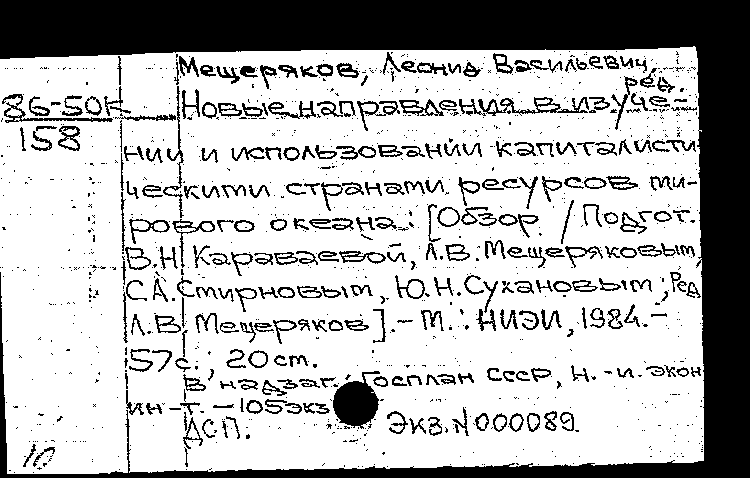 Мещеряков, Леонид Васильевич,
ред.
86-50К Новые направления в изуче-
158
нии и использовании капиталисти
ческими странами ресурсов ми-
рового океана: [Обзор / Подгот.
В.Н. Караваевой, Л.В. Мещеряковым,
С.А. Смирновым, Ю.Н. Сухановым; Ред.
Л.В. Мещеряков]. - М.: НИЭИ, 1984. -
57 с.; 20 cm.
В надзаг.: Госплан СССР, Н.-и. экон
ин-т. - 105 экз
ДСП. Экз. N 000089.
10